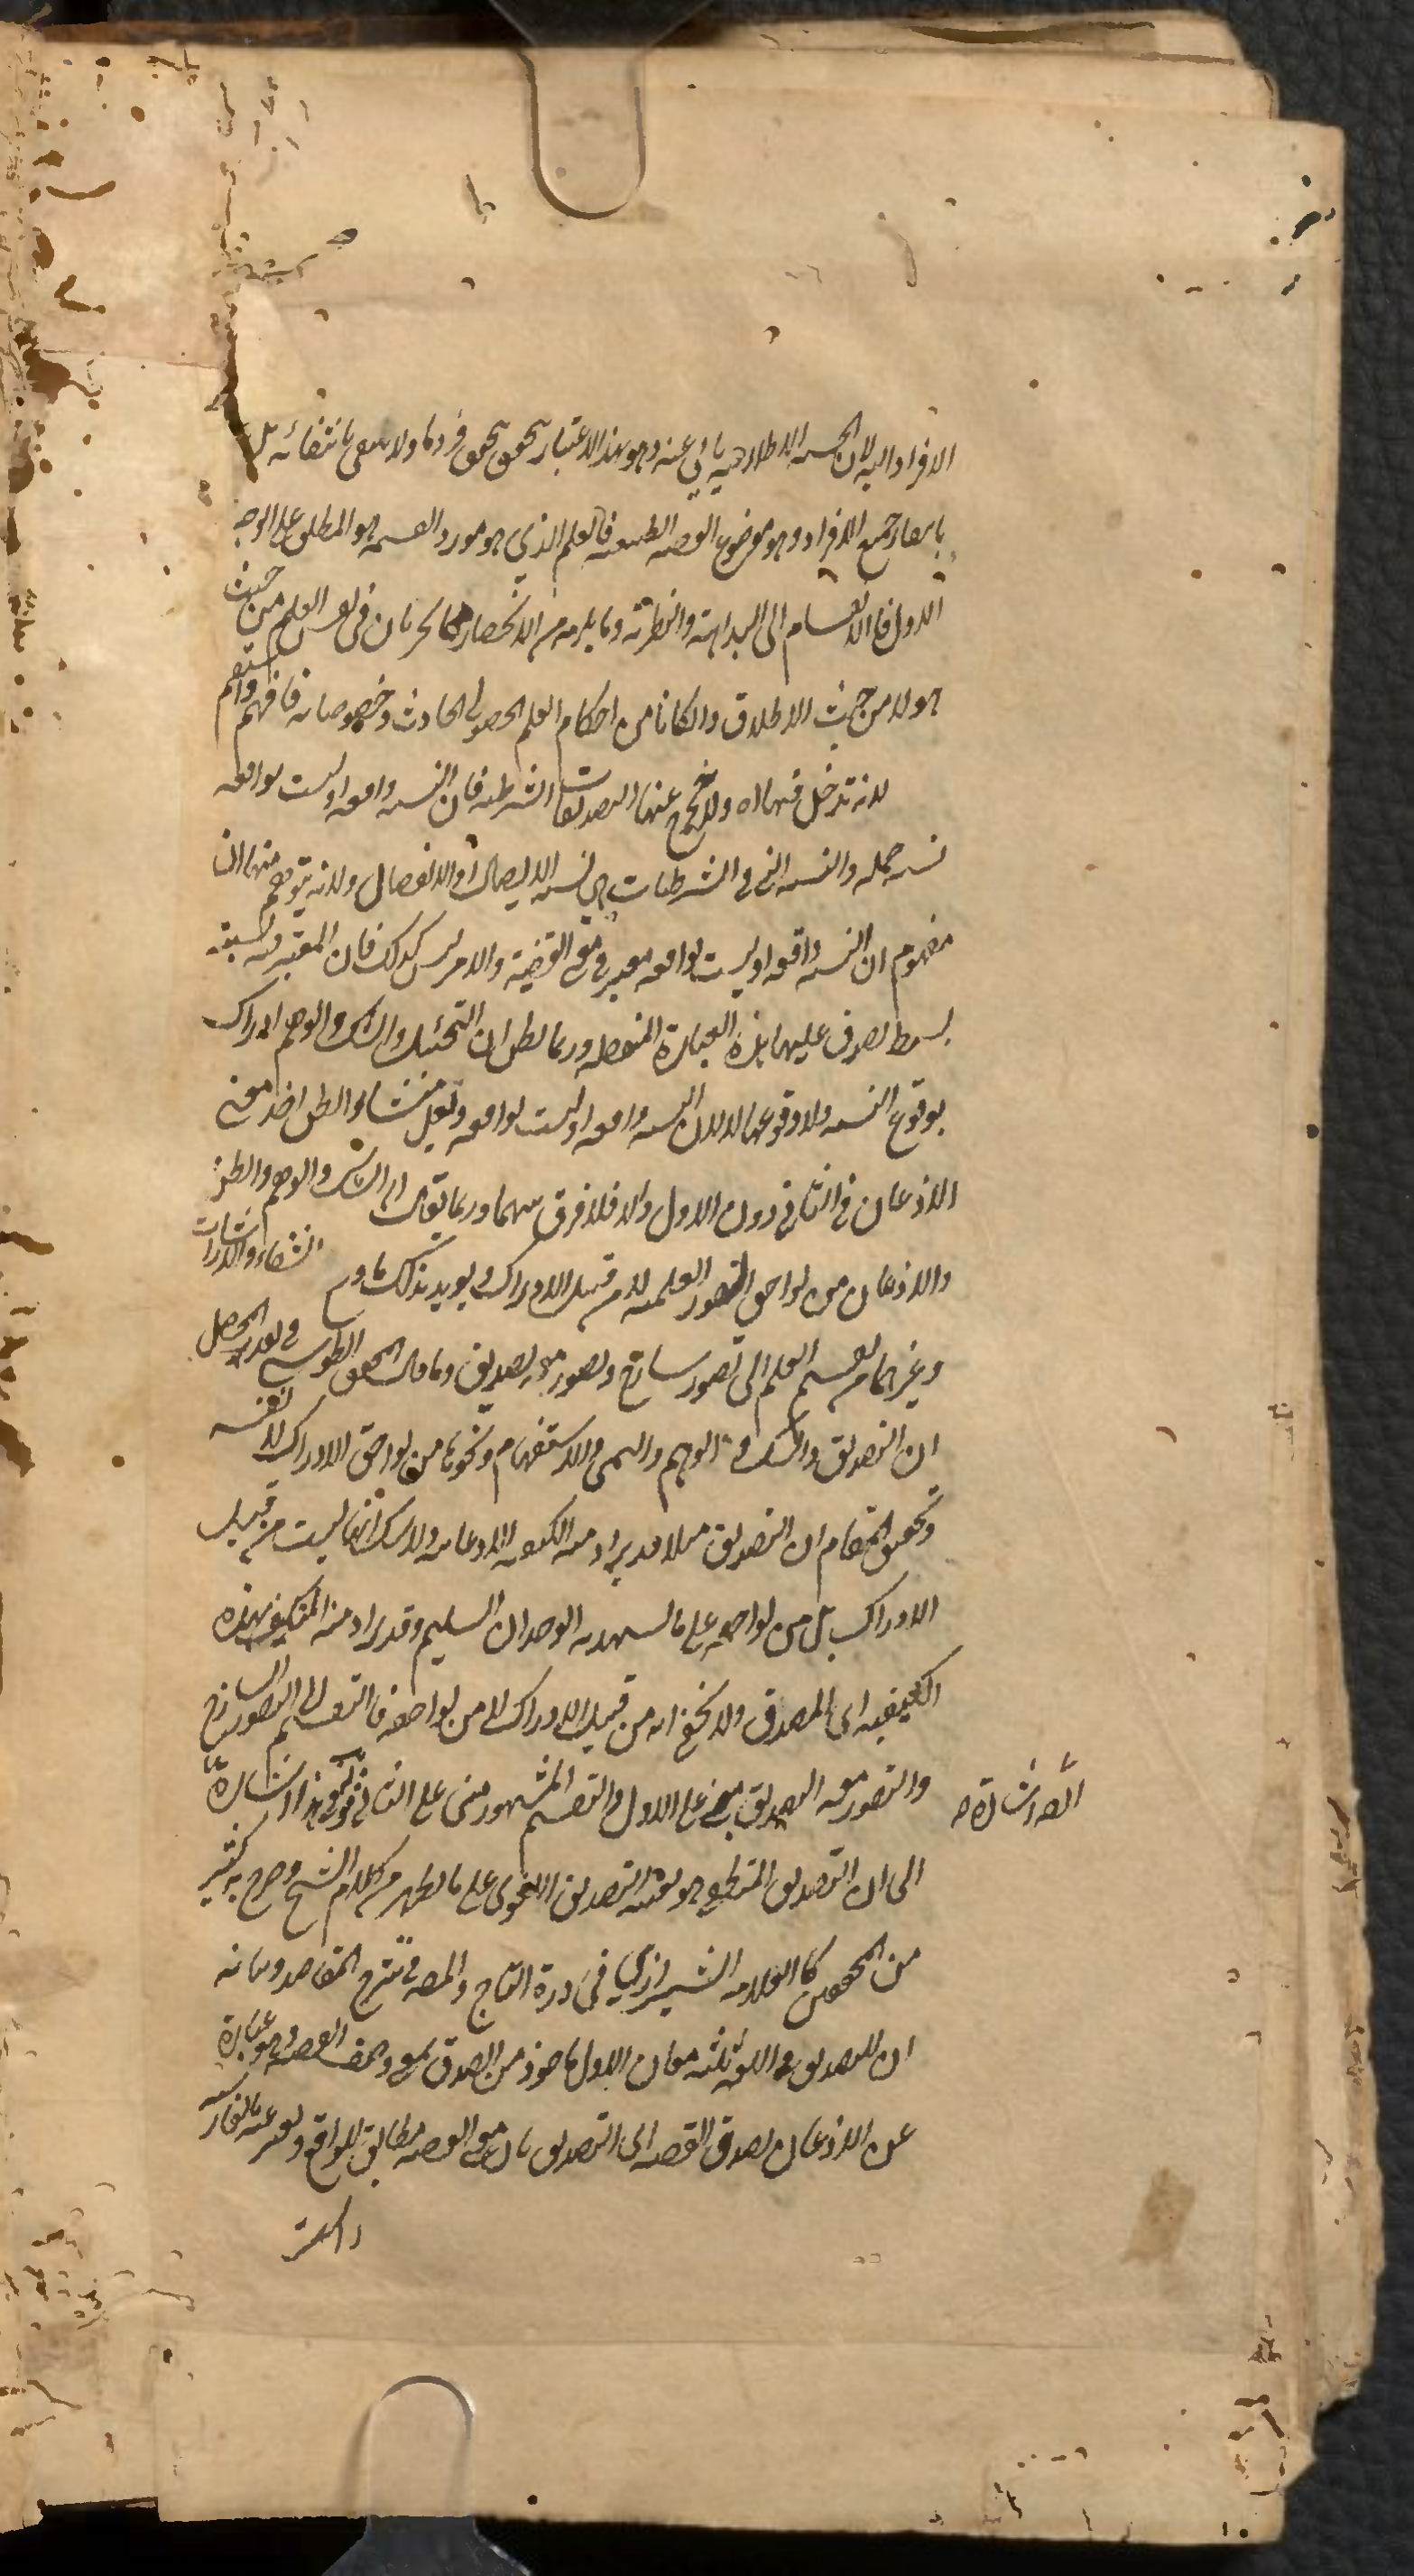 الافراد اليه لان الحيثية الاطلاقية يأبى عنه وهو بهذا الاعتبار يتحقق بتحقق فرد ما ولا ينتفى بانتفائه بل
بانتفاء جميع الافراد وهو موضوع القضية الطبيعية فالعلم الذي هو مورد القسمة هو المطلق على الوجه
الاول فالانقسام الى البداهة والنظرية وما يلزمه من الانحصار كما يجريان فى نفس العلم من حيث
هو لا من حيث الاطلاق وان كانا من احكام العلم الحصولى الحادث وخصوصياته فافهم واستقم
لانه تدخل فيها اه ولا يخرج عنها التصديقات الشرطية فان النسبة واقعة او ليست بواقعة
نسبة حملية والنسبة التى فى الشرطيات هى نسبة الاتصال او الانفصال ولانه يتوهم منها ان
مفهوم ان النسبة واقعة او ليست بواقعة معتبر فى معنى القضية والامر ليس كذلك فان المعتبر فيه نسبة
بسيطة يصدق عليها هذه العبارة المفصلة وربما يظن ان التخييل والشك والوهم ادراك
بوقوع النسبة ولا وقوعها لا لان النسبة واقعة او ليست بواقعة ولعل منشاء الظن اخذ معنى
الاذعان فى الثانى دون الاول والا فلا فرق بينهما وربما يقال ان الشك والوهم والظن
والاذعان من لواحق الصور العلمية لا من قبيل الادراك ويؤيد ذلك ما فى الشفاء والاشارات
وغيرهما من تقسيم العلم الى تصور ساذج وتصور معه تصديق وما قال المحقق الطوسى فى نقد المحصل
ان التصديق والشك والوهم والتمنى والاستفهام ونحوها من لواحق الادراك لا نفسه
وتحقيق المقام ان التصديق مثلا قد يراد منه الكيفية الاذعانية ولا شك انها ليست من قبيل
الادراك بل من لواحقه على ما يشهد به الوجدان السليم وقد يراد منه المتكيف بهذه
الكيفية اى المصدق ولا يخفى انه من قبيل الادراك لا من لواحقه فالتقسيم الى التصور الساذج
والتصور معه التصديق مبنى على الاول والتقسيم المشهور مبنى على الثانى قوله وفى هذا اشارة
اه اشارة
الى ان التصديق المنطقى هو بعينه التصديق اللغوى على ما يظهر من كلام الشيخ وصرح به كثير
من المحققين كالعلامة الشيرازي فى درة التاج والمصـ فى شرح المقاصد وبيانه
ان للتصديق فى اللغة ثلثة معان الاول ماخوذ من الصدق بمعنى وصف القضية وهو عبارة
عن الاذعان بصدق القضية اى التصديق بان معنى القضية مطابق للواقع ويعبر عنه بالفارسية